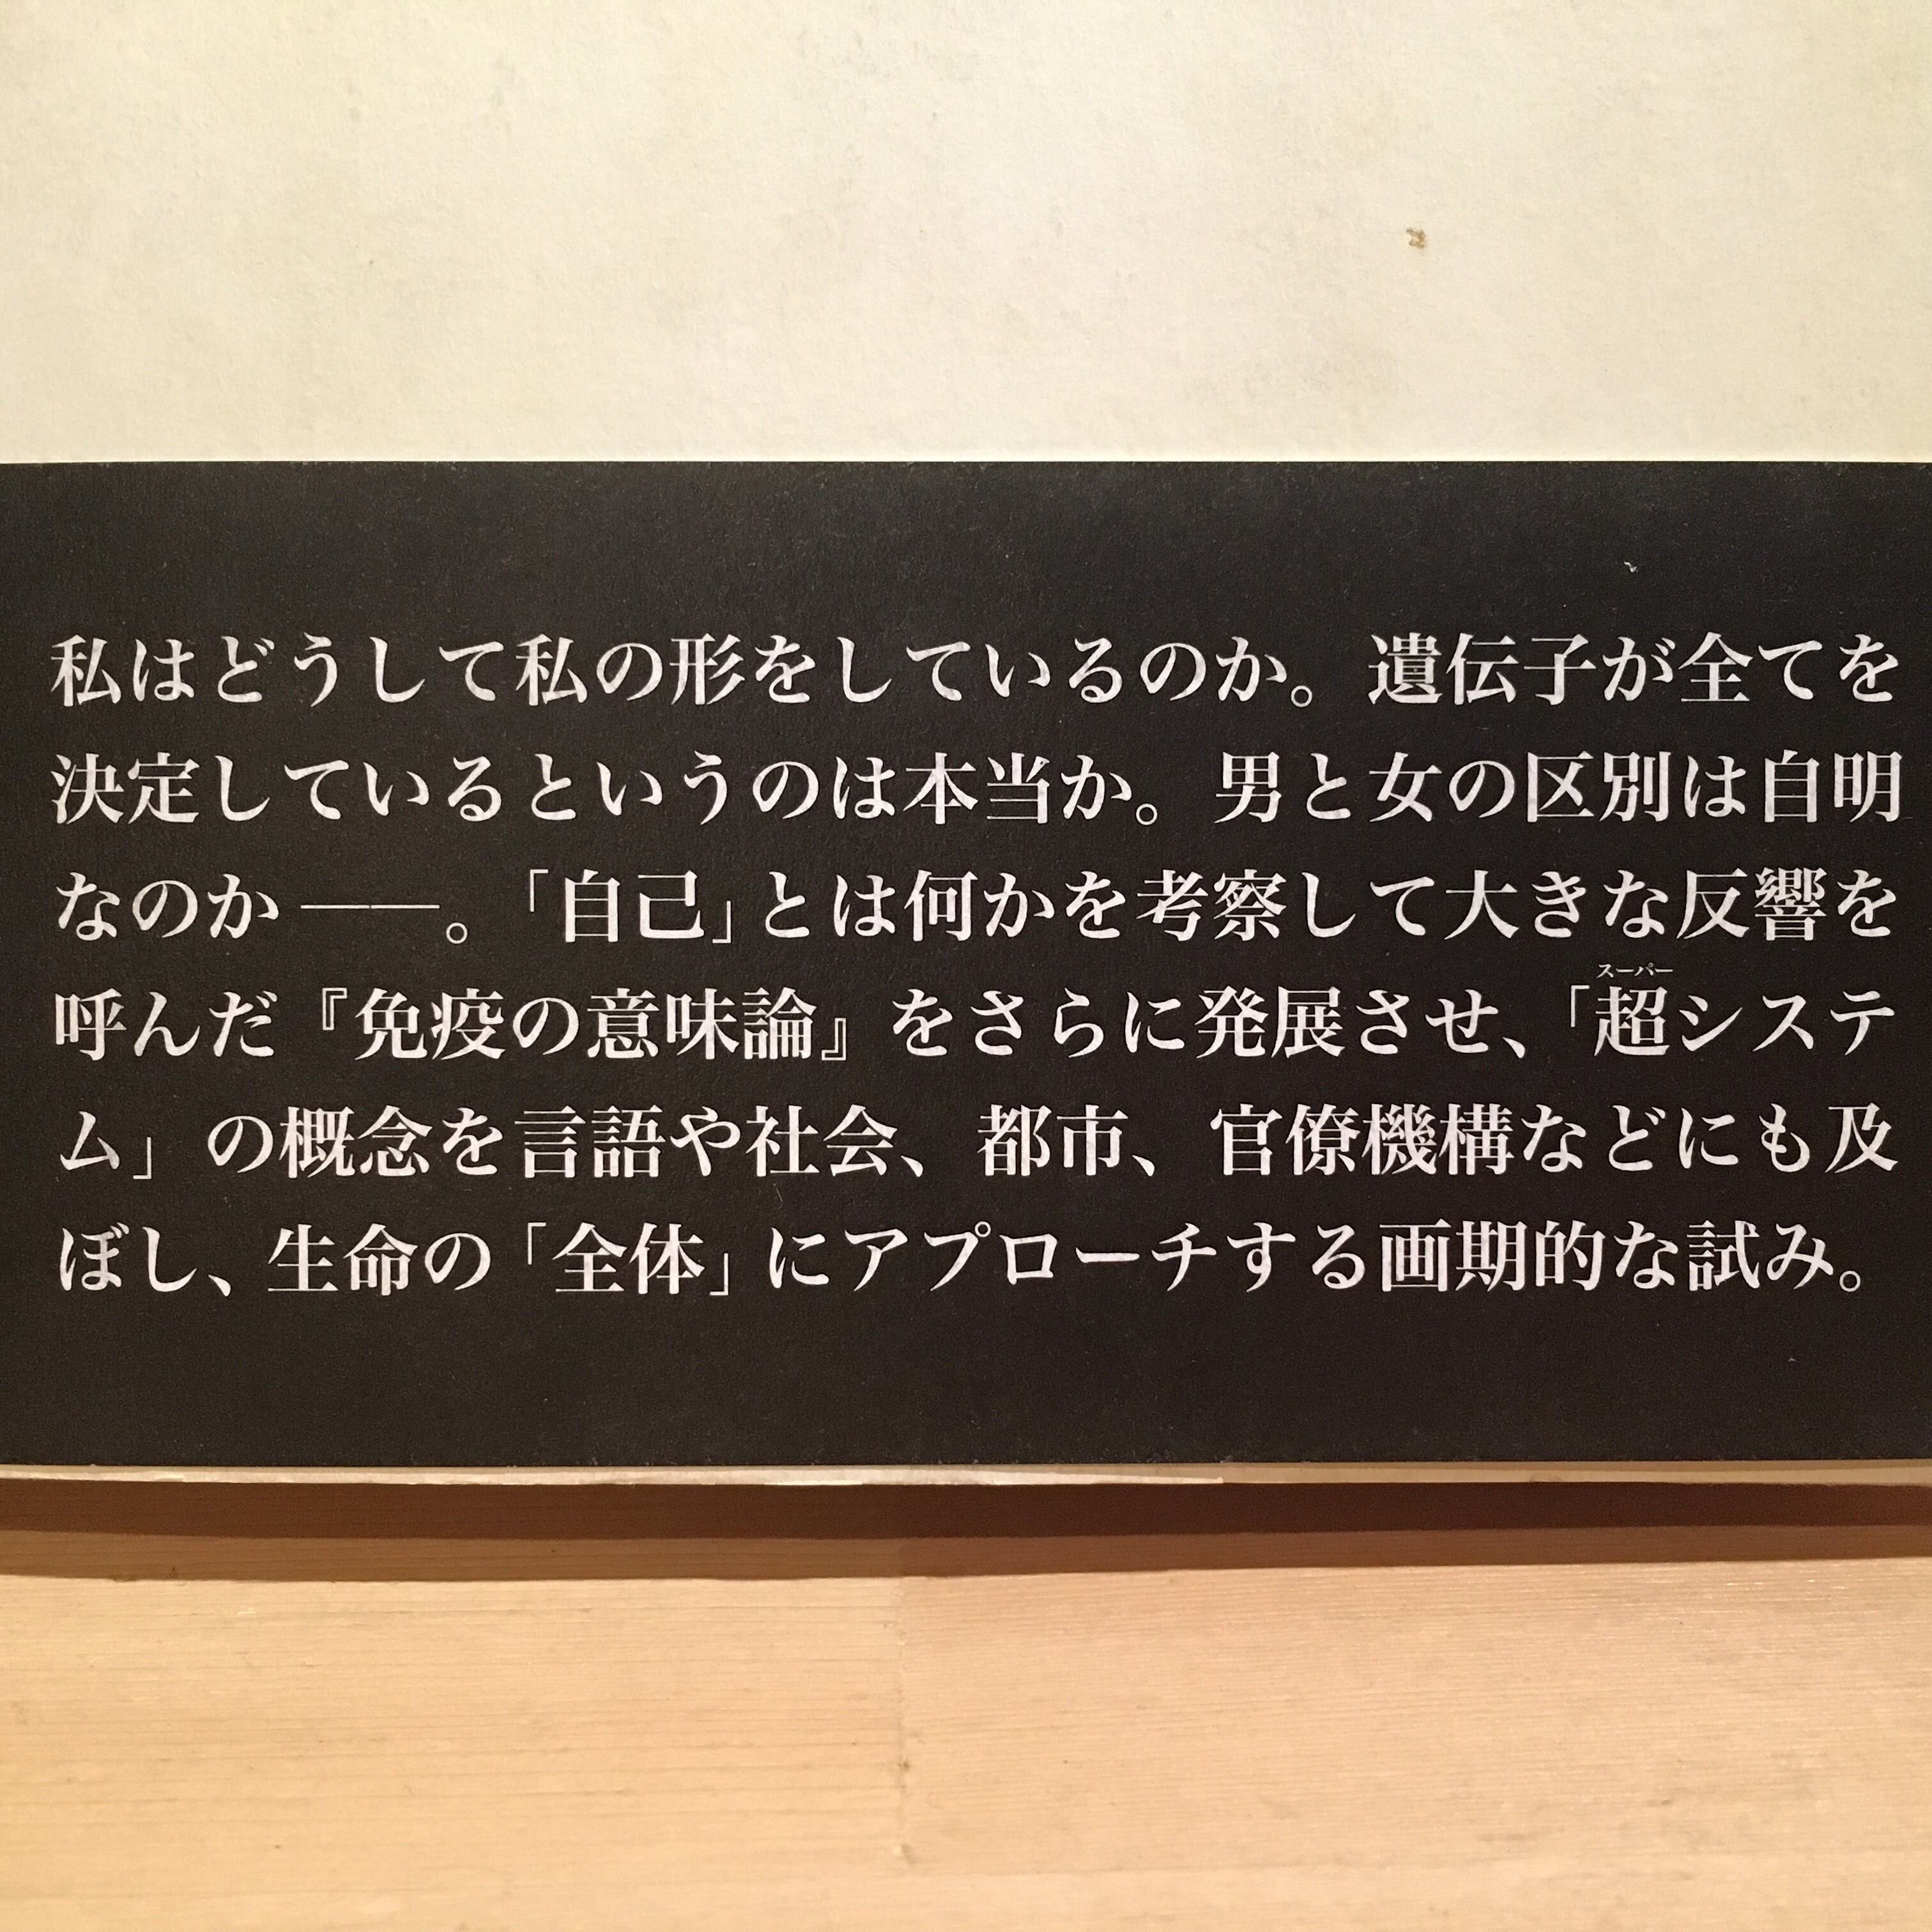 私はどうして私の形をしているのか。遺伝子が全てを
決定しているというのは本当か。男と女の区別は自明
なのか――。「自己」とは何かを考察して大きな反響を
スーパー
呼んだ『免疫の意味論』をさらに発展させ、「超システ
ム」の概念を言語や社会、都市、官僚機構などにも及
ぼし、生命の「全体」にアプローチする画期的な試み。